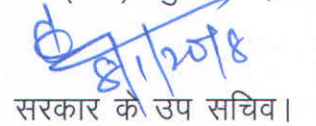 8/1/2018
सरकार के उप सचिव।